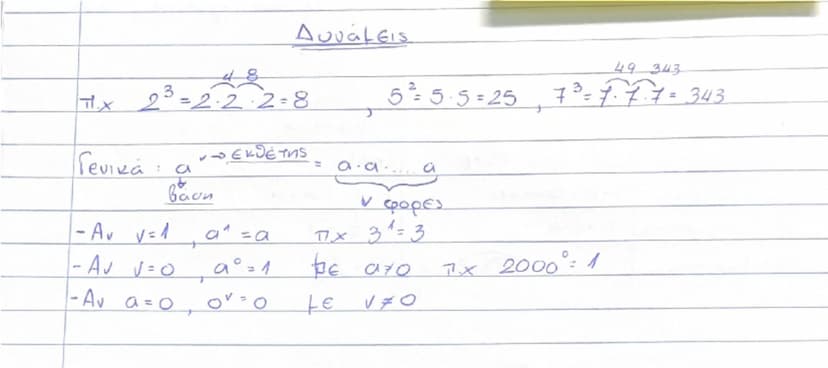 Δυνάμεις
4 8 49 343
πχ 2³ = 2·2·2 = 8 , 5² = 5·5 = 25 , 7³ = 7·7·7 = 343
Γενικά : a^ν → εκθέτης = a·a·...a
βάση ν φορες
- Αν ν=1 , a¹ = a πχ 3¹ = 3
- Αν ν=0 , a⁰ = 1 με a≠0 πχ 2000⁰ = 1
- Αν a=0 , 0^ν = 0 με ν≠0